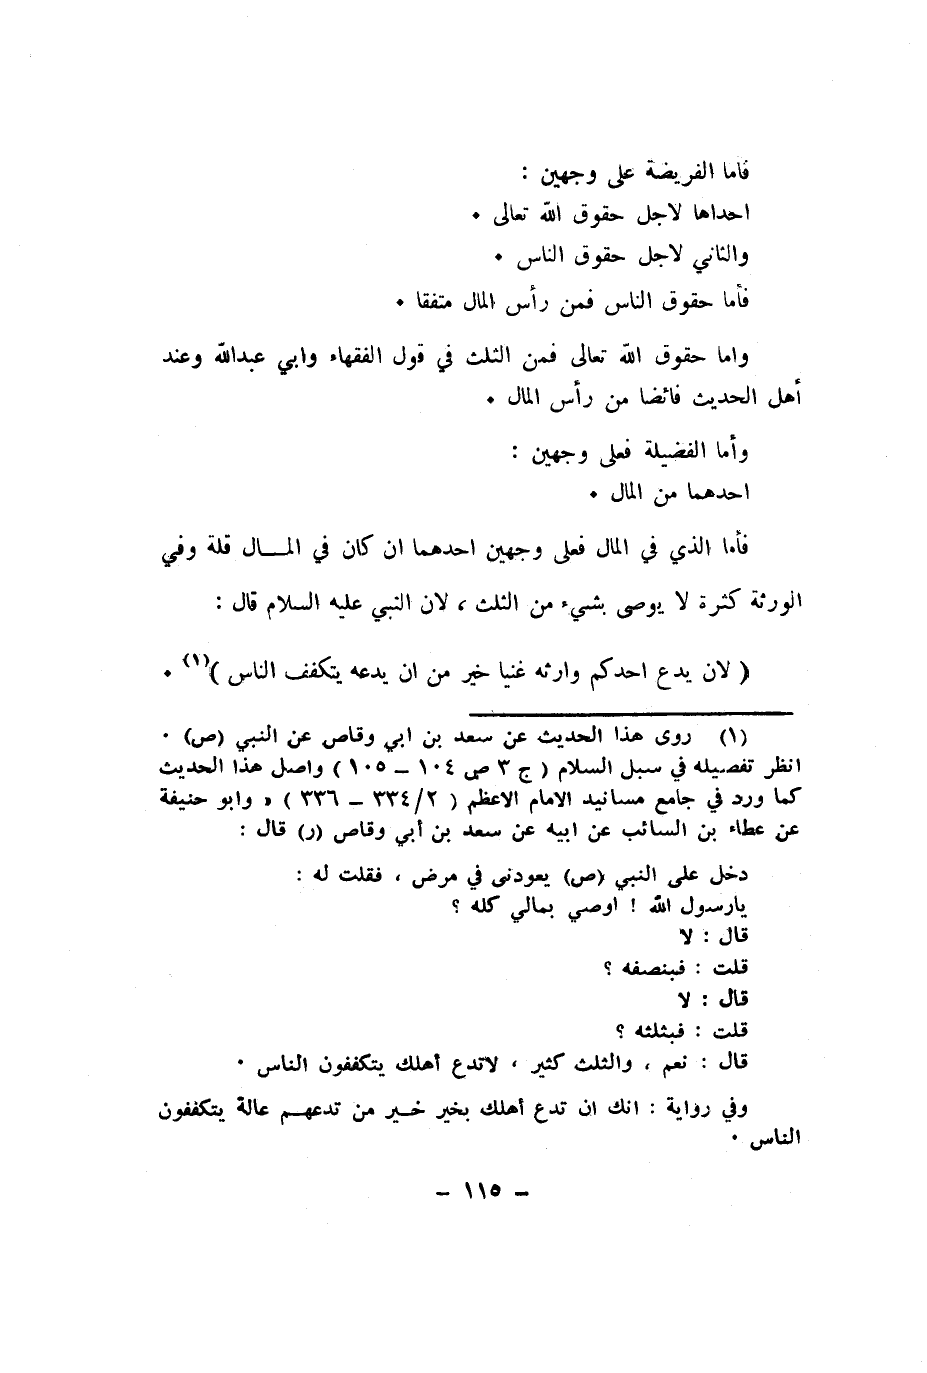 فاما الفريضة على وجهين :
احداها لاجل حقوق الله تعالى ٠
والثاني لاجل حقوق الناس ٠
فأما حقوق الناس فمن رأس المال متفقا ٠
واما حقوق الله تعالى فمن الثلث في قول الفقهاء وابي عبدالله وعند
أهل الحديث فائضا من رأس المال ٠
وأما الفضيلة فعلى وجهين :
احدهما من المال ٠
فأما الذي في المال فعلى وجهين احدهما ان كان في المـــال قلة وفي
الورثة كثرة لا يوصى بشيء من الثلث ، لان النبي عليه السلام قال :
( لان يدع احدكم وارثه غنيا خير من ان يدعه يتكفف الناس )(١) ٠
(١) روى هذا الحديث عن سعد بن ابي وقاص عن النبي (ص) ٠
انظر تفصيله في سبل السلام ( ج ٣ ص ١٠٤ ــ ١٠٥ ) واصل هذا الحديث
كما ورد في جامع مسانيد الامام الاعظم ( ٣٣٤/٢ ــ ٣٣٦ ) « وابو حنيفة
عن عطاء بن السائب عن ابيه عن سعد بن أبي وقاص (ر) قال :
دخل على النبي (ص) يعودنى في مرض ، فقلت له :
يارسول الله ! اوصي بمالي كله ؟
قال : لا
قلت : فبنصفه ؟
قال : لا
قلت : فبثلثه ؟
قال : نعم ، والثلث كثير ، لاتدع أهلك يتكففون الناس ٠
وفي رواية : انك ان تدع أهلك بخير خــير من تدعهــم عالة يتكففون
الناس ٠
ــ ١١٥ ــ